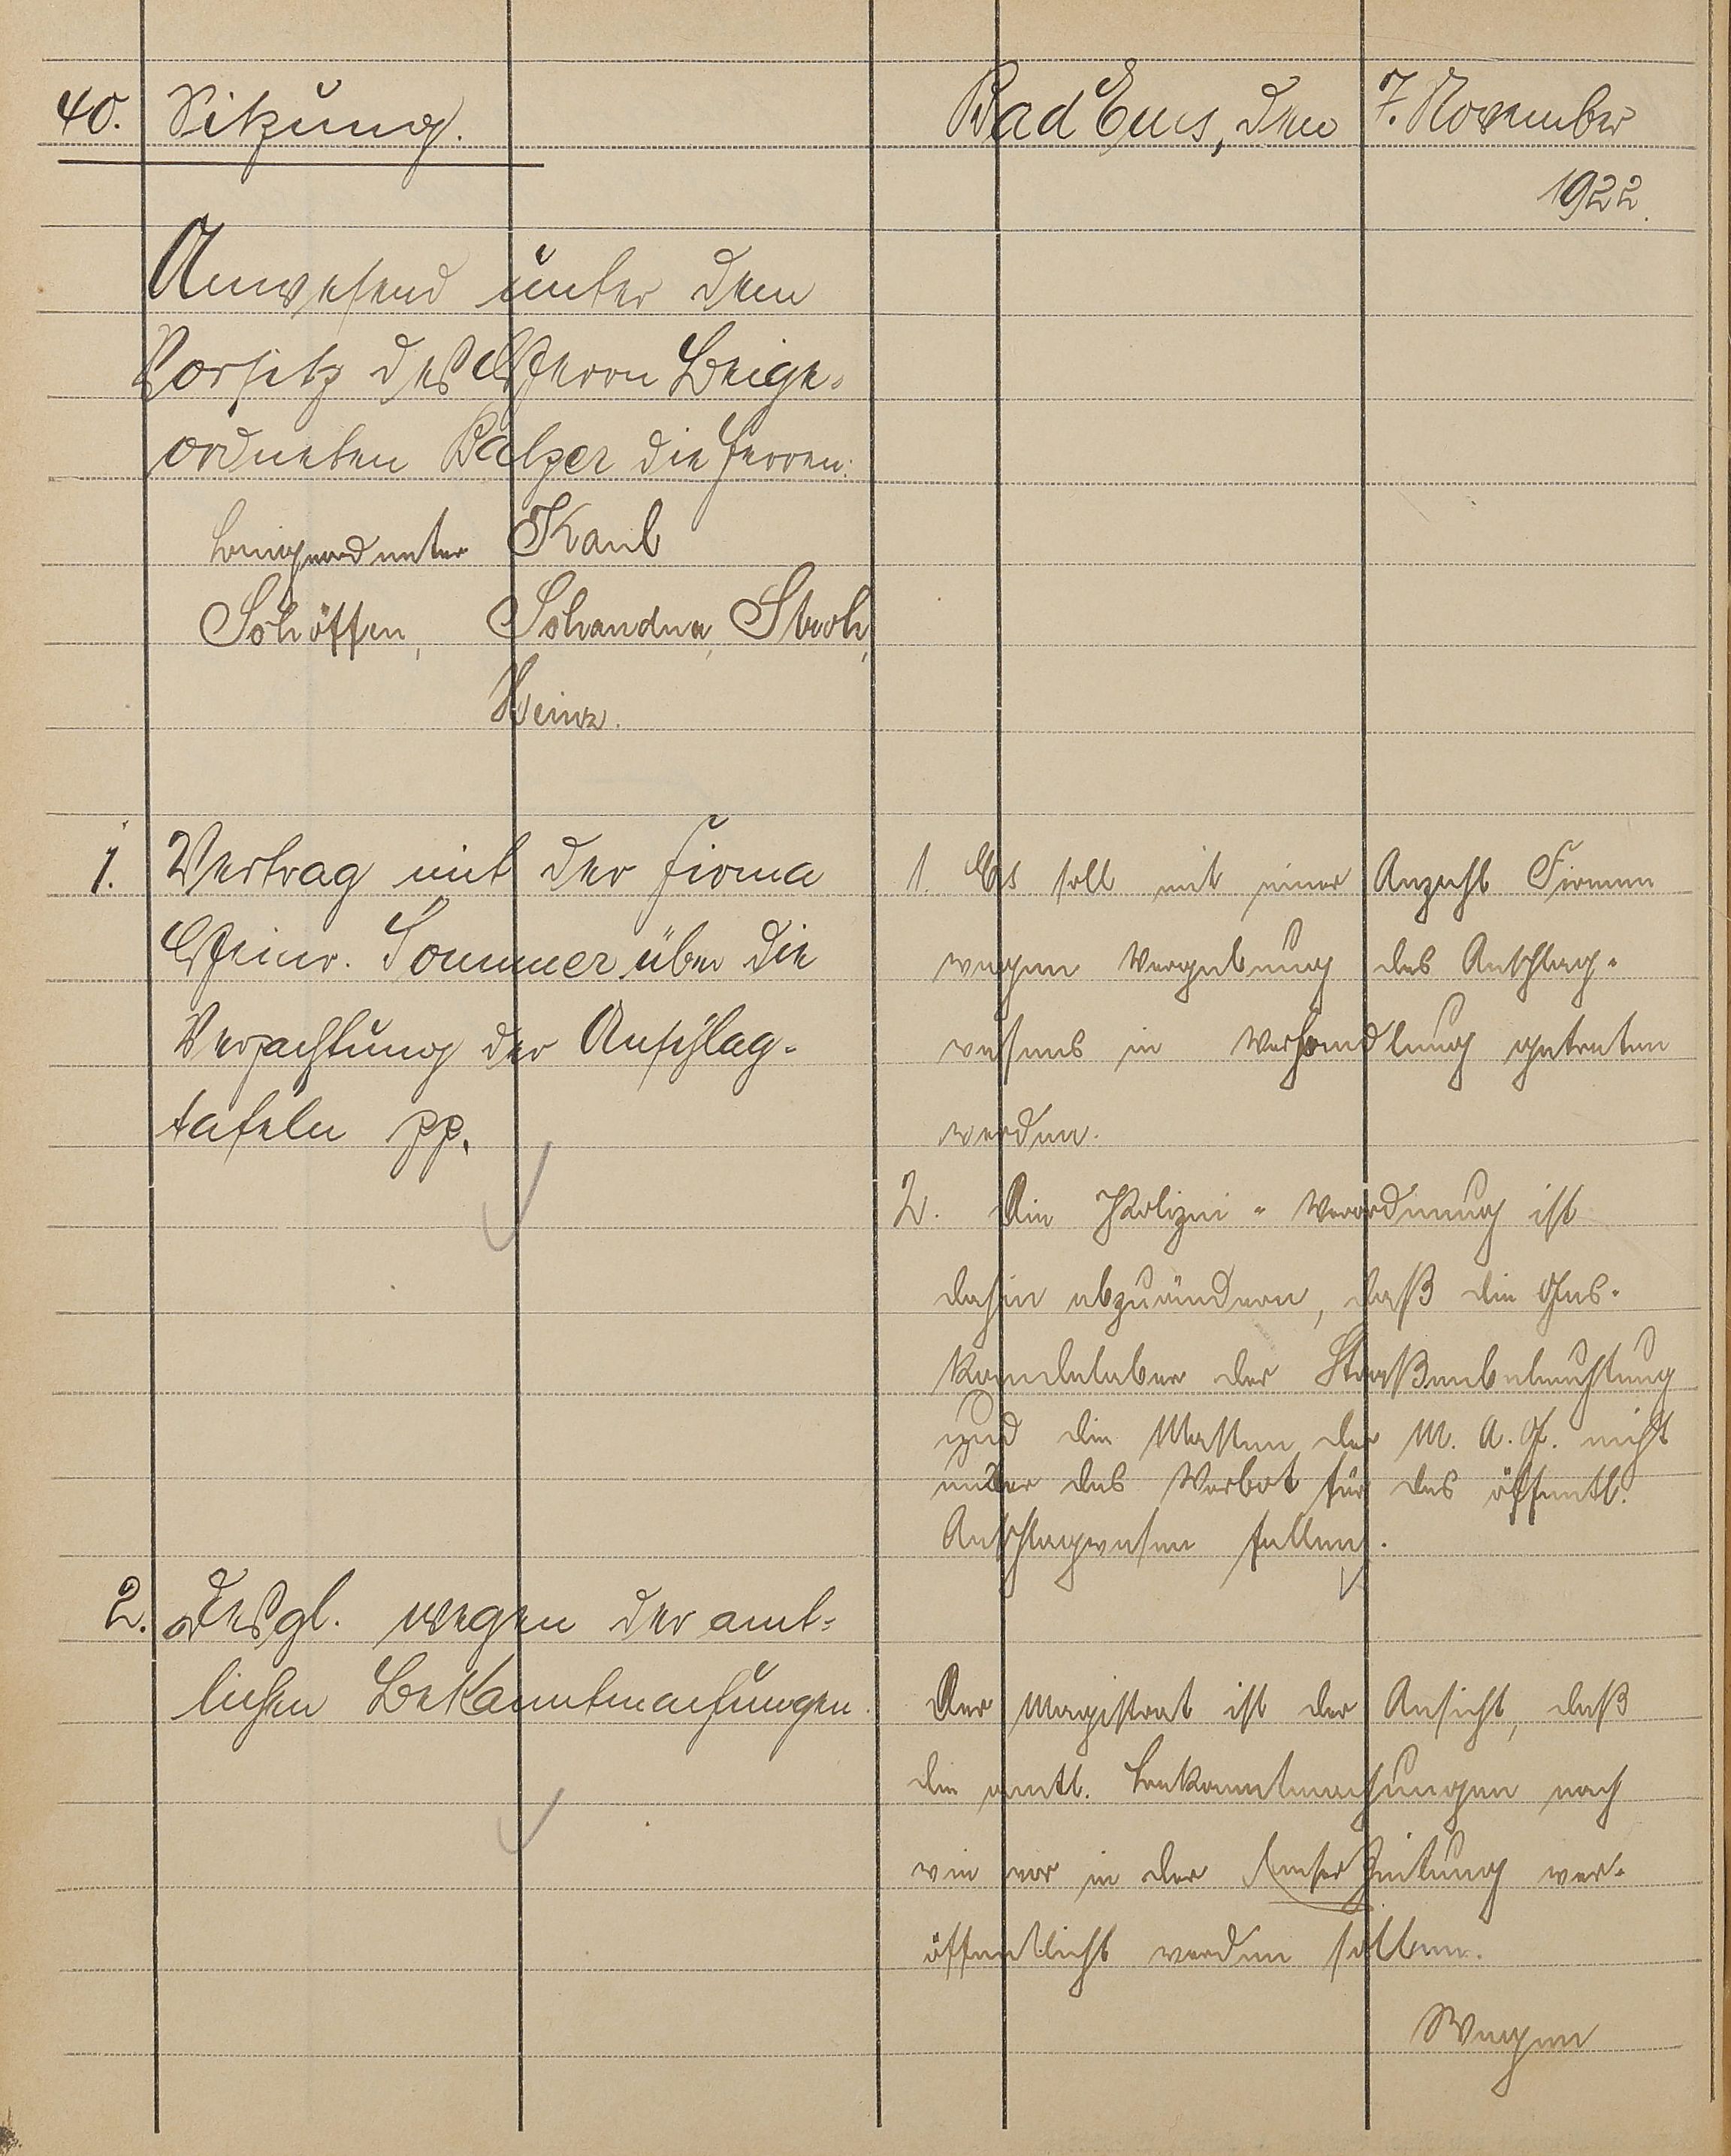 40. Sitzung.
Bad Ems, den 7. November
1922.
Anwesend unter dem
Vorsitz des Herrn Beige-
ordneten Balzer die Herren:
Beigeordneter Kaul
Schöffen, Schandua, Stroh,
Heinz.
1. Vertrag mit der Firma
Heinr. Sommer über die
Verpachtung der Anschlag-
tafeln pp.
1. Es soll mit einer Anzahl Firmen
wegen Vergebung des Anschlag-
wesens in Verhandlung getreten
werden.
2. Die Polizei-Verordnung ist
dahin abzuändern, daß die Gas-
kandelaber der Straßenbeleuchtung
und die Masten der M. A. G. nicht
unter das Verbot für das öffentl.
Anschlagwesen fallen.
2. Desgl. wegen der amt-
lichen Bekanntmachungen.
Der Magistrat ist der Ansicht, daß
die amtl. Bekanntmachungen nach
wie vor in der Emser Zeitung ver-
öffentlicht werden sollen.
Wegen